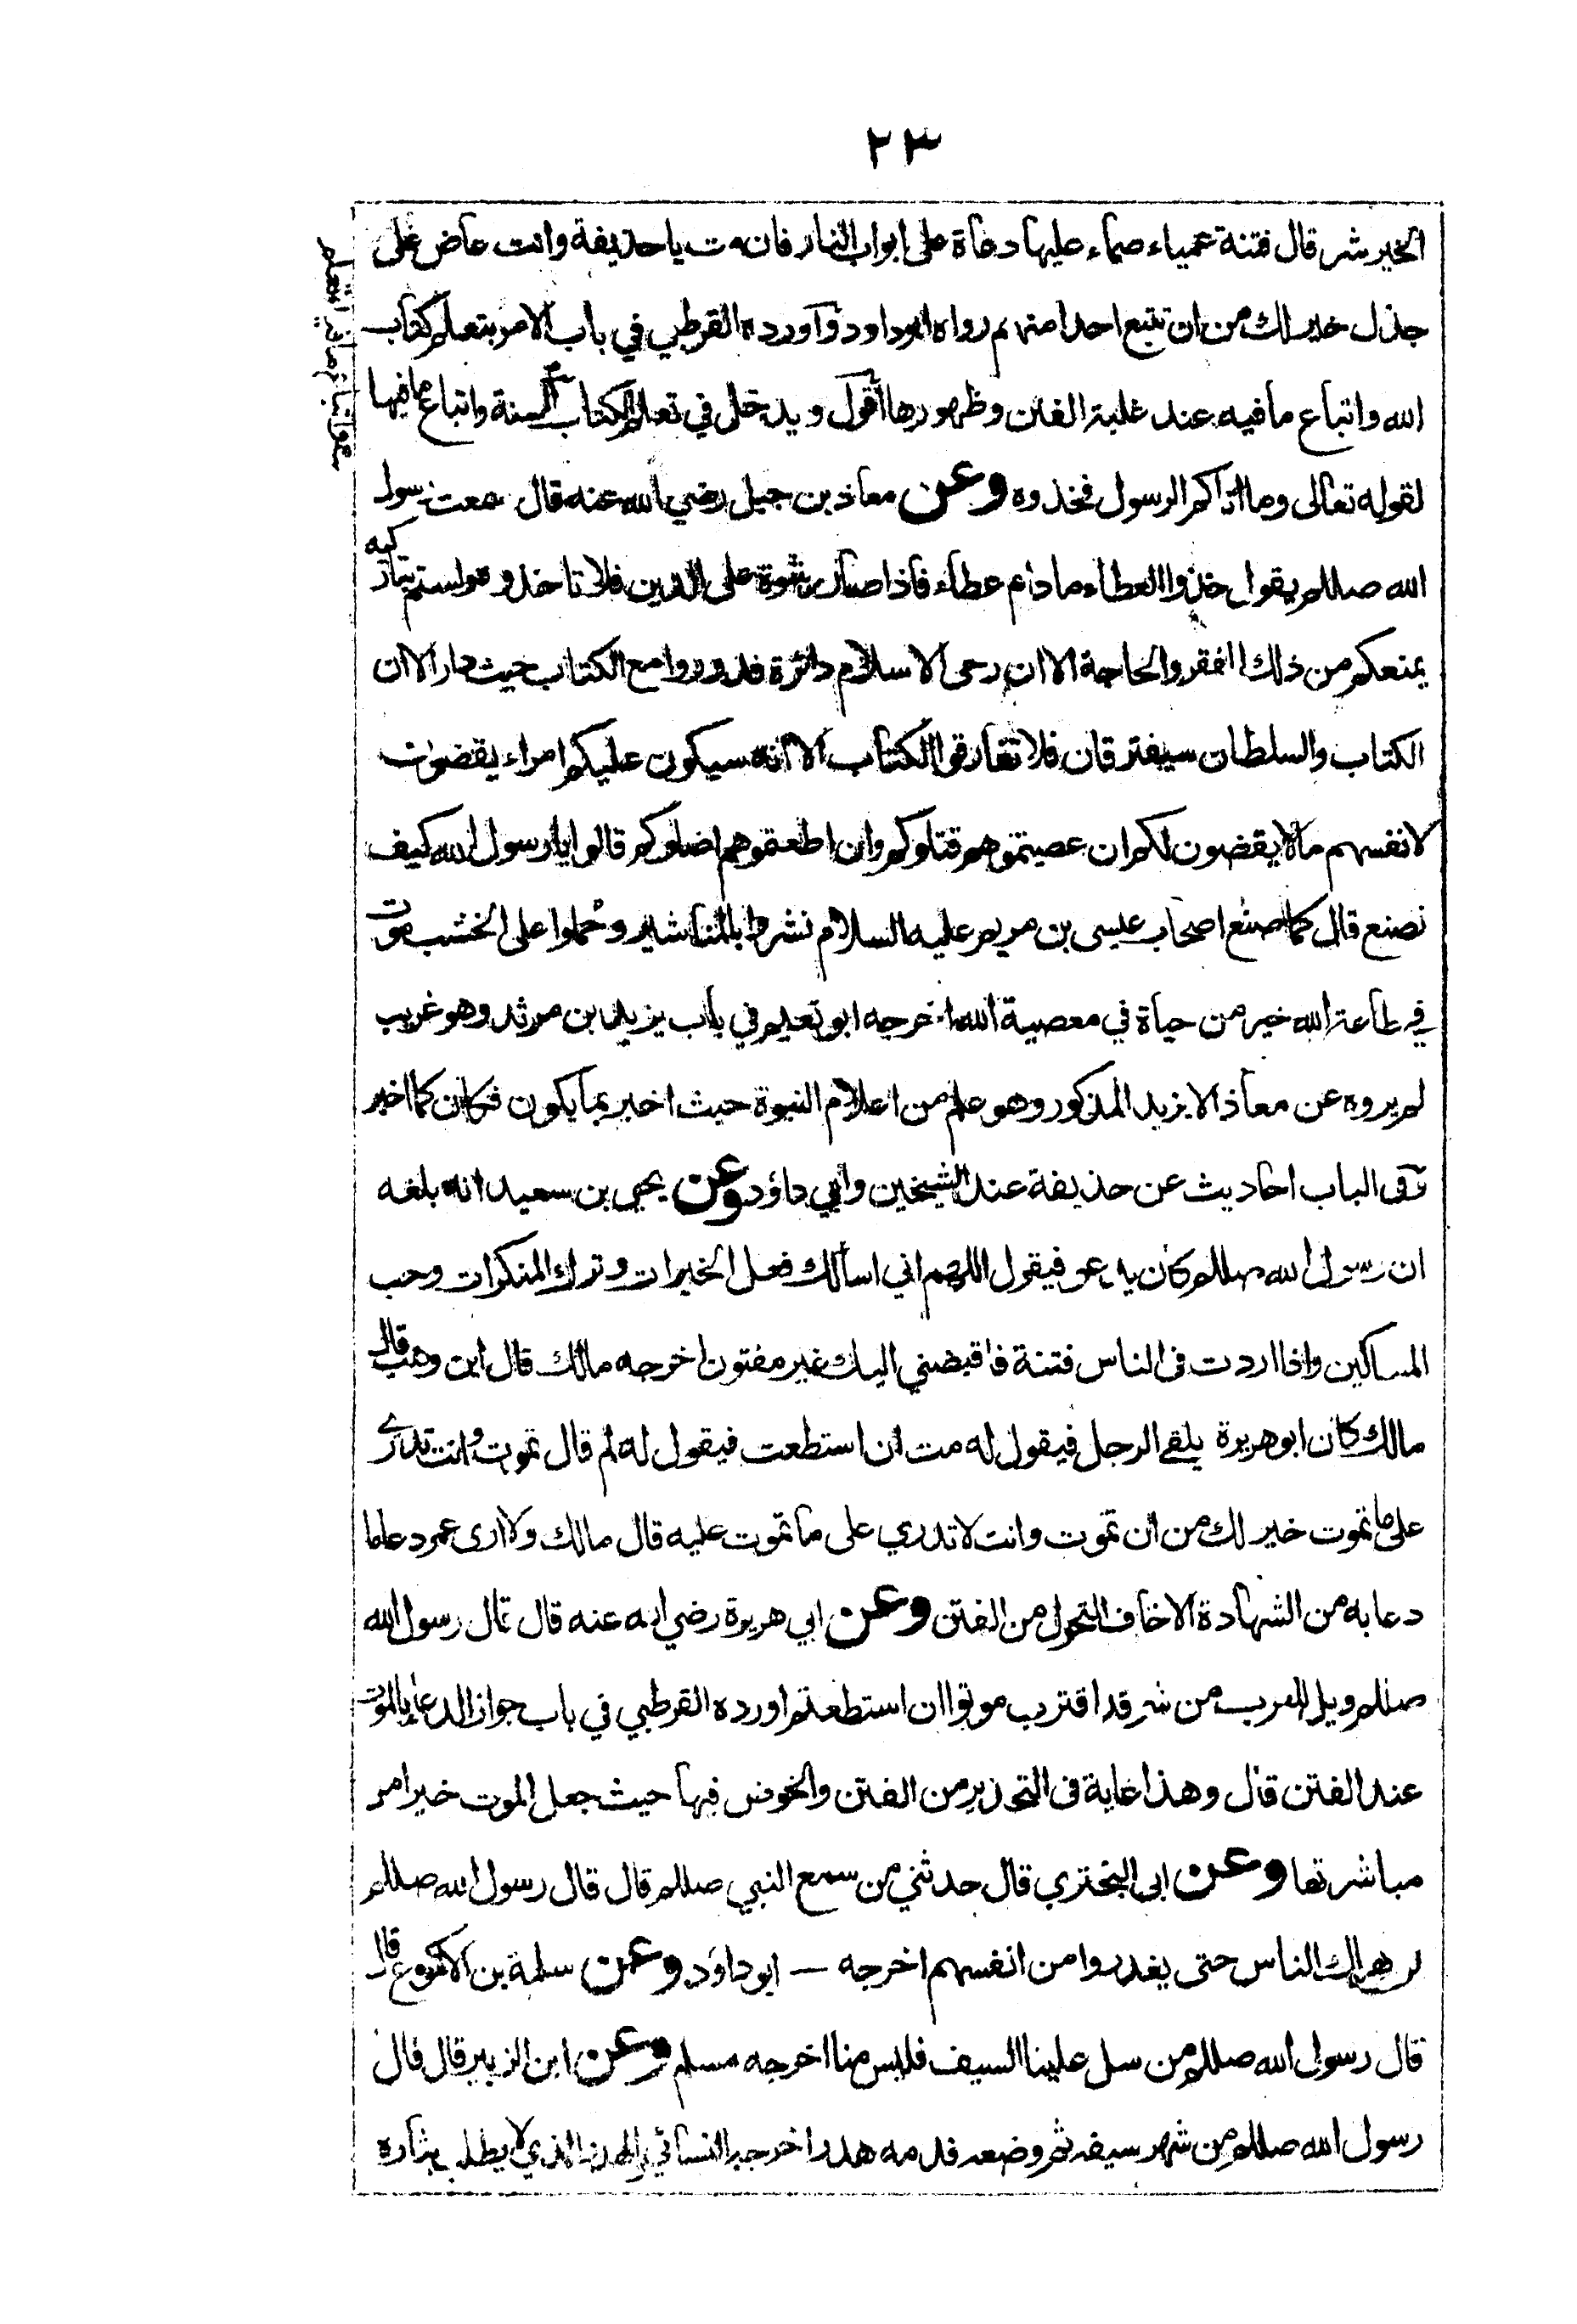 ٢٣
الخير شر قال فتنة عمياء صماء عليها دعاة على ابواب النار فان مت يا حذيفة وانت عاض على
جذل خير لك من ان تتبع احدا منهم رواه ابو داود وأورده القرطبي في باب الامر بتعلم كتاب
الله واتباع ما فيه عند غلبة الفتن وظهورها أقول ويدخل في تعلم الكتاب السنة واتباع ما فيها
لقوله تعالى وما اتاكم الرسول فخذوه وعن معاذ بن جبل رضي الله عنه قال سمعت رسول
الله صللم يقول خذوا العطاء ما دام عطاء فاذا صار رشوة على الدين فلا تاخذوه ولستم بتاركيه
يمنعكم من ذلك الفقر والحاجة الا ان رحى الاسلام دائرة فدوروا مع الكتاب حيث دار الا ان
الكتاب والسلطان سيفترقان فلا تفارقوا الكتاب الا انه سيكون عليكم امراء يقضون
لانفسهم ما لا يقضون لكم ان عصيتموهم قتلوكم وان اطعتموهم اضلوكم قالوا يا رسول الله كيف
نصنع قال كما صنع اصحاب عيسى بن مريم عليه السلام نشروا بالمناشير وحملوا على الخشب موت
في طاعة الله خير من حياة في معصية الله اخرجه ابو نعيم في باب يزيد بن مرثد وهو غريب
لم يروه عن معاذ الا يزيد المذكور وهو علم من اعلام النبوة حيث اخبر بما يكون فكان كما اخبر
وفى الباب احاديث عن حذيفة عند الشيخين وأبي داؤد وعن يحيى بن سعيد انه بلغه
ان رسول الله صللم كان يدعو فيقول اللهم اني اسألك فعل الخيرات وترك المنكرات وحب
المساكين واذا اردت فى الناس فتنة فاقبضني اليك غير مفتون اخرجه مالك قال ابن وهب قال
مالك كان ابو هريرة يلقى الرجل فيقول له مت ان استطعت فيقول له لم قال تموت وانت تدري
على ما تموت خير لك من ان تموت وانت لا تدري على ما تموت عليه قال مالك ولا ارى عمر دعا ما
دعا به من الشهادة الا خاف التحول من الفتن وعن ابي هريرة رضي الله عنه قال قال رسول الله
صللم ويل للعرب من شر قد اقترب موتوا ان استطعتم اورده القرطبي في باب جواز الدعاء بالموت
عند الفتن قال وهذا غاية فى التحذير من الفتن والخوض فيها حيث جعل الموت خيرا من
مباشرتها وعن ابى البختري قال حدثني من سمع النبي صللم قال قال رسول الله صللم
لن هلك الناس حتى يغدروا من انفسهم اخرجه — ابو داؤد وعن سلمة بن الاكوع قال
قال رسول الله صللم من سل علينا السيف فليس منا اخرجه مسلم وعن ابن الزبير قال قال
رسول الله صللم من شهر سيفه ثم وضعه فدمه هدر اخرجه النسائي الهدر الذي لا يطلب بثاره